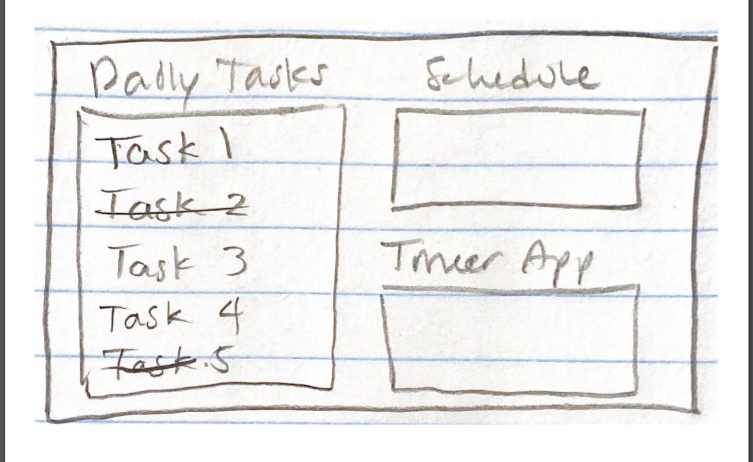 Daily Tasks
Task 1
Task 2
Task 3
Task 4
Task 5
Schedule
Timer App